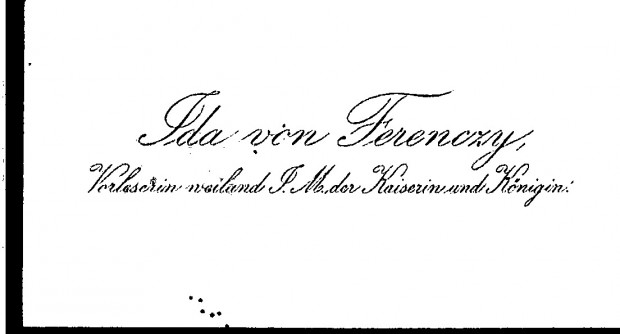 Ida von Ferenczy,
Vorleserin weiland I. M. der Kaiserin und Königin.